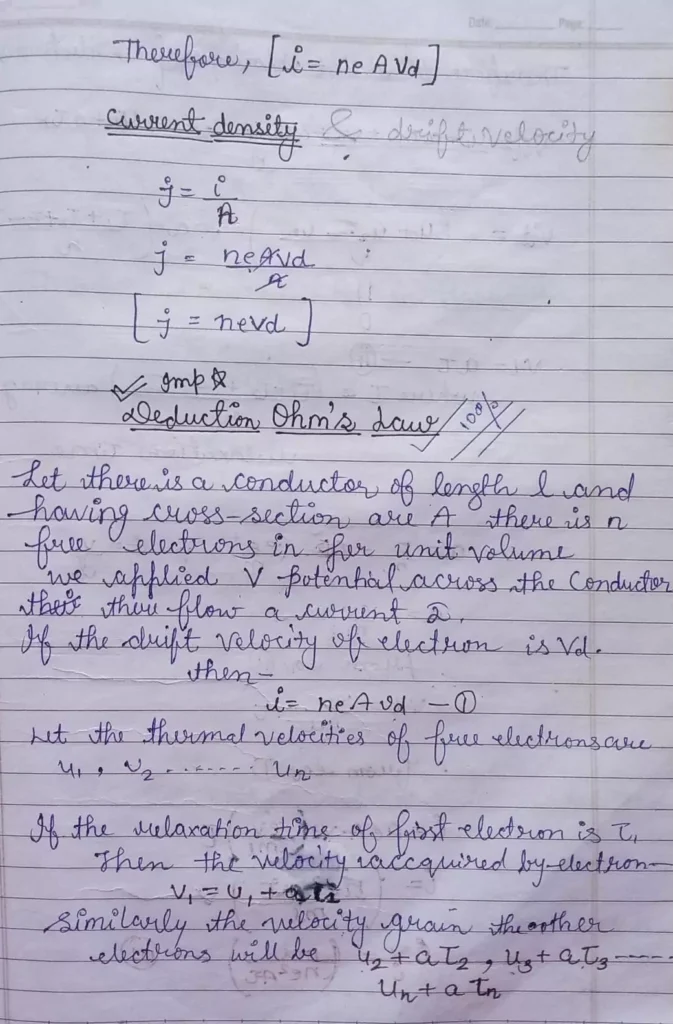 Date Page
Therefore, [i = neAVd]
Current density & drift velocity
j = i/A
j = neAvd/A
[j = nevd]
Imp
Deduction Ohm's Law 100%
Let there is a conductor of length l and
having cross-section are A there is n
free electrons in per unit volume
we applied V potential across the Conductor
then flow a current i.
If the drift velocity of electron is Vd.
then-
i = neAvd - ①
Let the thermal velocities of free electrons are
u₁, u₂ ........ un
If the relaxation time of first electron is τ₁
Then the velocity accquired by electron-
v₁ = u₁ + aτ₁
Similarly the velocity grain the other
electrons will be u₂ + aτ₂, u₃ + aτ₃ -----
un + aτn